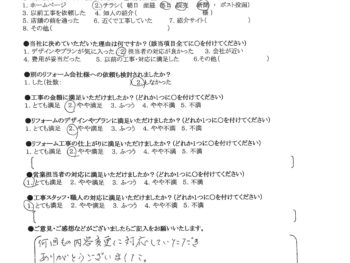 1. ホームページ 2. チラシ( 朝日 産経 毎日 読売 新聞 ・ ポスト投函)
3. 以前工事を依頼した 4. 知人の紹介( 様 )
5. 店舗の前を通った 6. 近くで工事していた 7. 紹介サイト( )
8. その他( )
●当社に決めていただいた理由は何ですか?(該当項目全てに○を付けてください)
1. デザインやプランが気に入った 2. 担当者の対応が良かった 3. 会社が近い
4. 費用が妥当だった 5. 以前の工事・対応に満足 6. その他( )
●別のリフォーム会社様への依頼も検討されましたか?
1. した(社数: ) 2. しなかった
●工事の金額に満足いただけましたか?(どれか1つに○を付けてください)
1. とても満足 2. やや満足 3. ふつう 4. やや不満 5. 不満
●リフォームのデザインやプランに満足いただけましたか?(どれか1つに○を付けてください)
1. とても満足 2. やや満足 3. ふつう 4. やや不満 5. 不満
●リフォーム工事の仕上がりに満足いただけましたか?(どれか1つに○を付けてください)
1. とても満足 2. やや満足 3. ふつう 4. やや不満 5. 不満
●営業担当者の対応に満足いただけましたか?(どれか1つに○を付けてください)
1. とても満足 2. やや満足 3. ふつう 4. やや不満 5. 不満
●工事スタッフ・職人の対応に満足いただけましたか?(どれか1つに○を付けてください)
1. とても満足 2. やや満足 3. ふつう 4. やや不満 5. 不満
●ご意見・ご感想などがございましたらご記入をお願いいたします。
何回も内容変更に対応していただき
ありがとうございました。